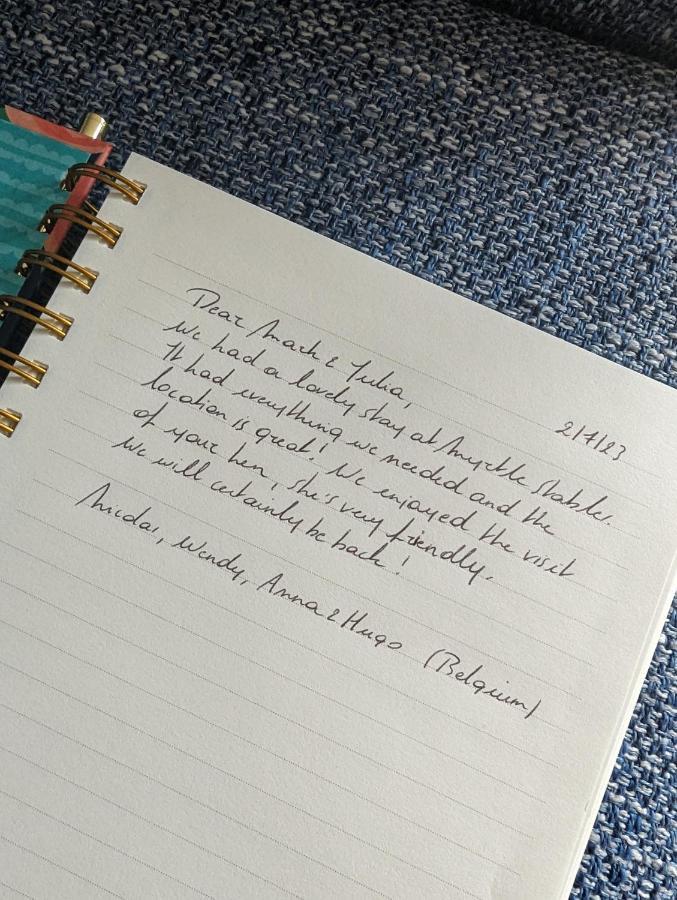 2/7/23
Dear Mark & Julia,
We had a lovely stay at Myrtle Stable.
It had everything we needed and the
location is great! We enjoyed the visit
of your hen, she's very friendly.
We will certainly be back!
Nicolas, Wendy, Anna & Hugo (Belgium)